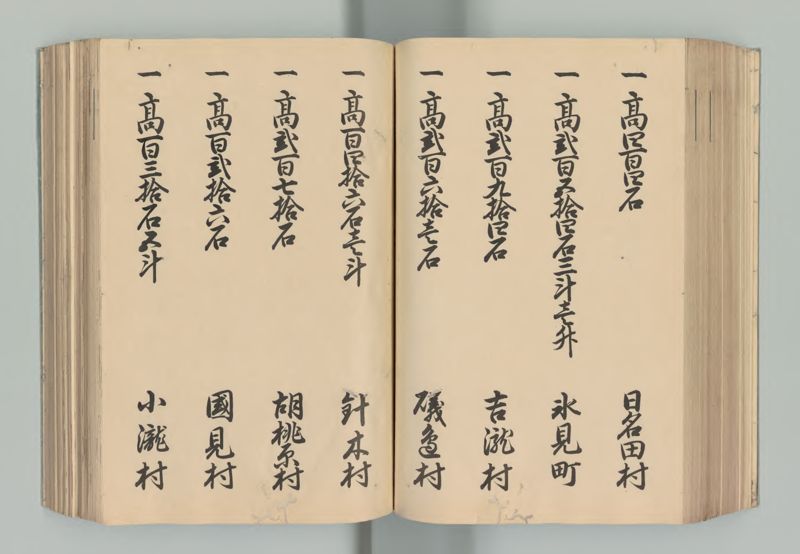 一 高四百四石 日名田村
一 高弐百五拾四石三斗壱升 氷見町
一 高弐百九拾四石 吉瀧村
一 高弐百六拾壱石 礒邉村
一 高百四拾六石壱斗 針木村
一 高弐百七拾石 胡桃原村
一 高百弐拾六石 國見村
一 高百三拾石五斗 小瀧村